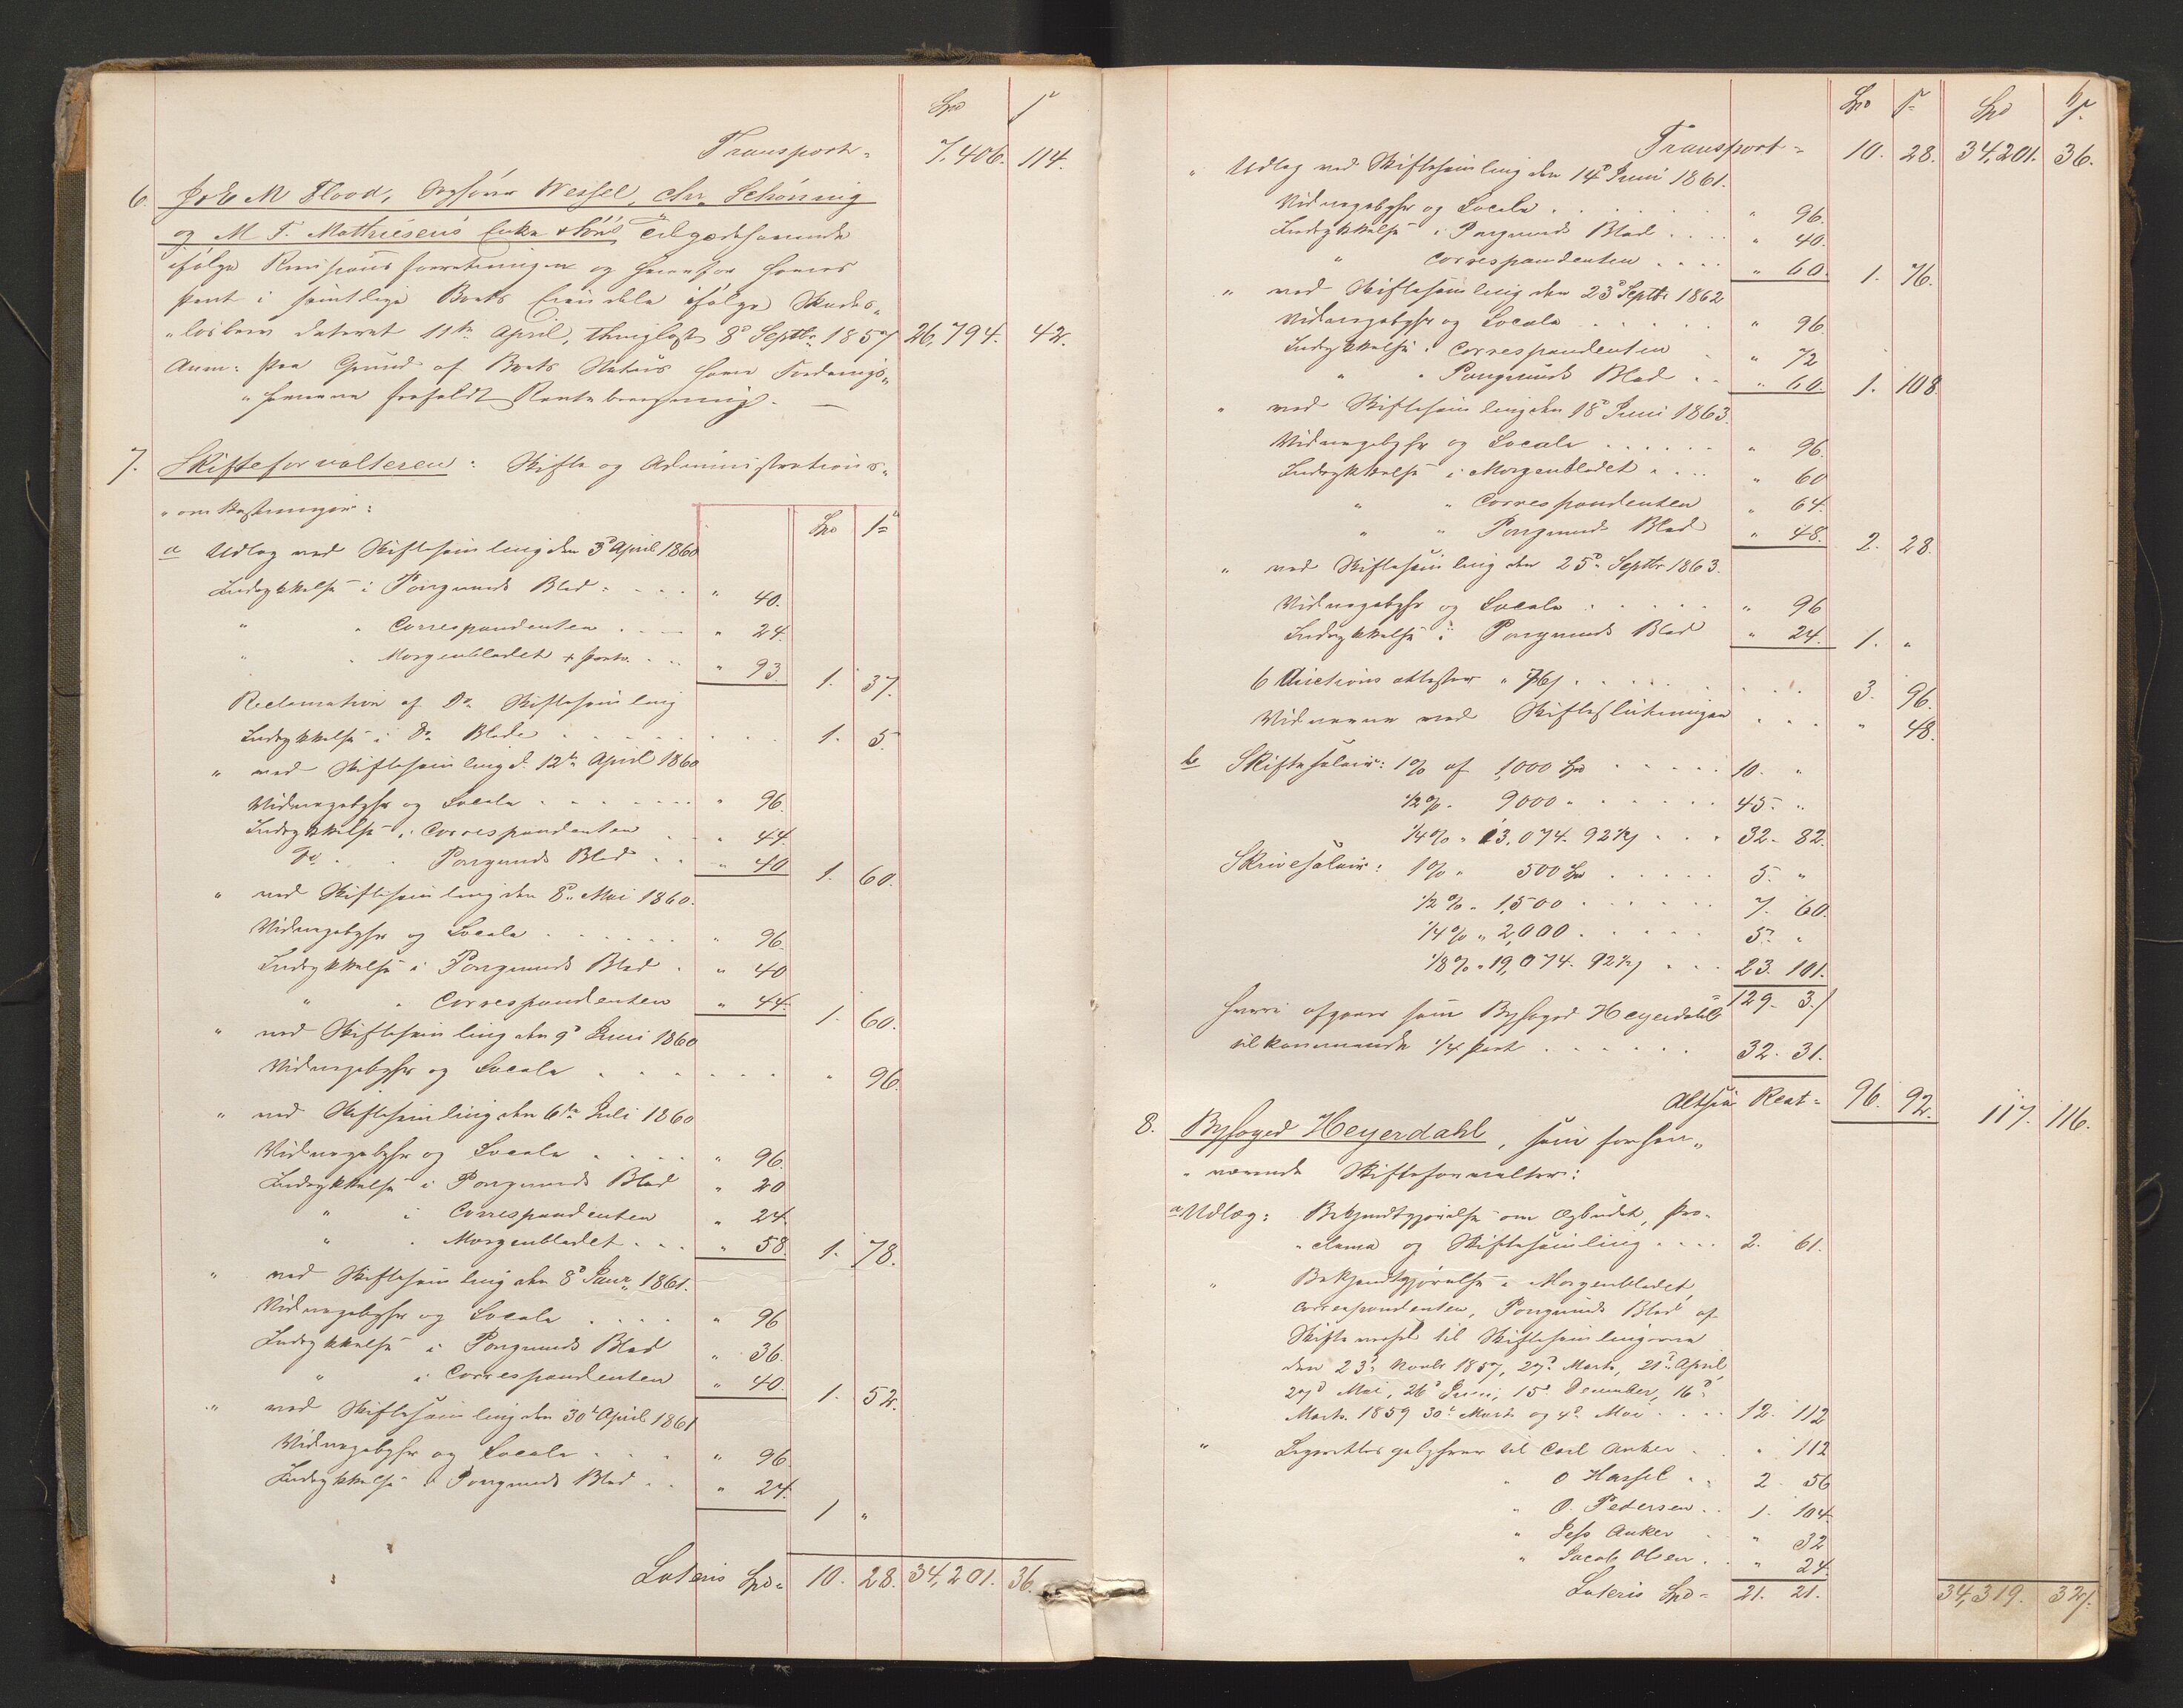 Spd ſ
Transport = 7,406. 114.
6. J & E M Flood, Byfoged Wessel, Chr. Schönning
og M F. Mathiesens Enke & Søns tilgodehavende
ifølge
Pant i samtlige Boets Eiendele ifølge Skades-
"løsbrev dateret 11te April, thinglæst 8de Septbr. 1857 26,794. 42.
Anm: Paa Grund af Boets Status have Fordrings-
"haverne frafaldt Renteberegning. —
7. Skifteforvalteren: Skifte og Administrations-
"omkostninger:
Spd ſ
a Udlæg ved Skiftesamling den 3d April 1860
Indrykkelse i Porsgrunds Blad . . . " 40.
" " Correspondenten . . " 24.
" " Morgenbladet + Porto . . " 93. 1. 37.
Reclamation af Do Skiftesamling
Indrykkelse i Do Blade . . . . 1. 5.
" ved Skiftesamling d. 12te April 1860
Vidnegebyhr og Locale . . . . " 96.
Indrykkelse i Correspondenten . " 44.
Do . . Porsgrunds Blad . . " 40 1. 60.
" ved Skiftesamling den 8de Mai 1860.
Vidnegebyhr og Locale . . . . " 96.
Indrykkelse i Porsgrunds Blad . " 40
" " Correspondenten " 44. 1. 60.
" ved Skiftesamling den 9d Juni 1860
Vidnegebyhr og Locale . . . . " 96.
" ved Skiftesamling den 6te Juli 1860
Vidnegebyhr og Locale . . . . " 96.
Indrykkelse i Porsgrunds Blad " 20
" i Correspondenten " 24.
" . Morgenbladet . . . " 58. 1. 78.
" ved Skiftesamling den 8d Janr. 1861.
Vidnegebyhr og Locale . . . . " 96
Indrykkelse i Porsgrunds Blad " 36.
" i Correspondenten " 40. 1. 52.
" ved Skiftesamling den 30t April 1861
Vidnegebyhr og Locale . . . " 96.
Indrykkelse i Porsgrunds Blad . . " 24. 1 "
Lateris Spd = 10. 28. 34,201. 36.
Spd ſ Spd ſ
Transport = 10. 28. 34,201. 36.
" Udlæg ved Skiftesamling den 14d Juni 1861.
Vidnegebyhr og Locale . . . . " 96.
Indrykkelse i Porsgrunds Blad . . . " 40.
" Correspondenten . . . . " 60. 1. 76.
" ved Skiftesamling den 23d Septbr 1862
Vidnegebyhr og Locale . . . . " 96.
Indrykkelse i Correspondenten . " 72
" " Porsgrunds Blad . . " 60. 1. 108.
" ved Skiftesamling den 18d Juni 1863.
Vidnegebyhr og Locale . . . . " 96.
Indrykkelse i Morgenbladet . . . " 60
" " Correspondenten " 64.
" " Porsgrunds Blad " 48. 2. 28.
" ved Skiftesamling den 25d Septbr 1863.
Vidnegebyhr og Locale . . . . " 96
Indrykkelse i Porsgrunds Blad " 24. 1. "
6 Auctions attester " 76ſ . . . . 3. 96.
Vidnerne ved Skifteslutningen . . . " 48.
b Skiftesalair: 1% af 1,000 Spd . . . . 10. "
1/2% " 9000 " . . . . 45. "
1/4% " 13,074. 92ſ . . . 32 - 82.
Skrivesalair: 1% " 500 Spd . . . . 5. "
1/2% " 1,500 . . . . 7. 60.
1/4% " 2,000 . . . . 5. "
1/8% " 19,074. 92ſ . . . 23. 101.
129. 3.
Heri afgaaer som Byfoged Heyerdahl
tilkommende 1/4 Part . . . . 32. 31.
Altsaa Rest = 96. 92. 117. 116.
8. Byfoged Heyerdahl, som forhen-
"værende Skifteforvalter:
a Udlæg: Bekjendtgjørelse om Opbudet, Pro-
"clama og Skiftesamling . . . . 2. 61.
" Bekjendtgjørelse i Morgenbladet,
Correspondenten, Porsgrunds Blad af
Skiftevarsel til Skiftesamlingerne
den 23d Novbr 1857, 27d Marts, 21d April,
27d Mai, 26d Juni, 15d December, 16d
Marts 1859 30t Marts og 4d Mai . . . . 12. 112
" gebyhrer til Carl Anker . " 112
" O Hassel . . 2. 56
" O. Pedersen . . 1. 104.
" Jess Anker . . " 32
" Jacob Olsen . . " 24.
Lateris Spd = 21. 21. 34,319. 32.